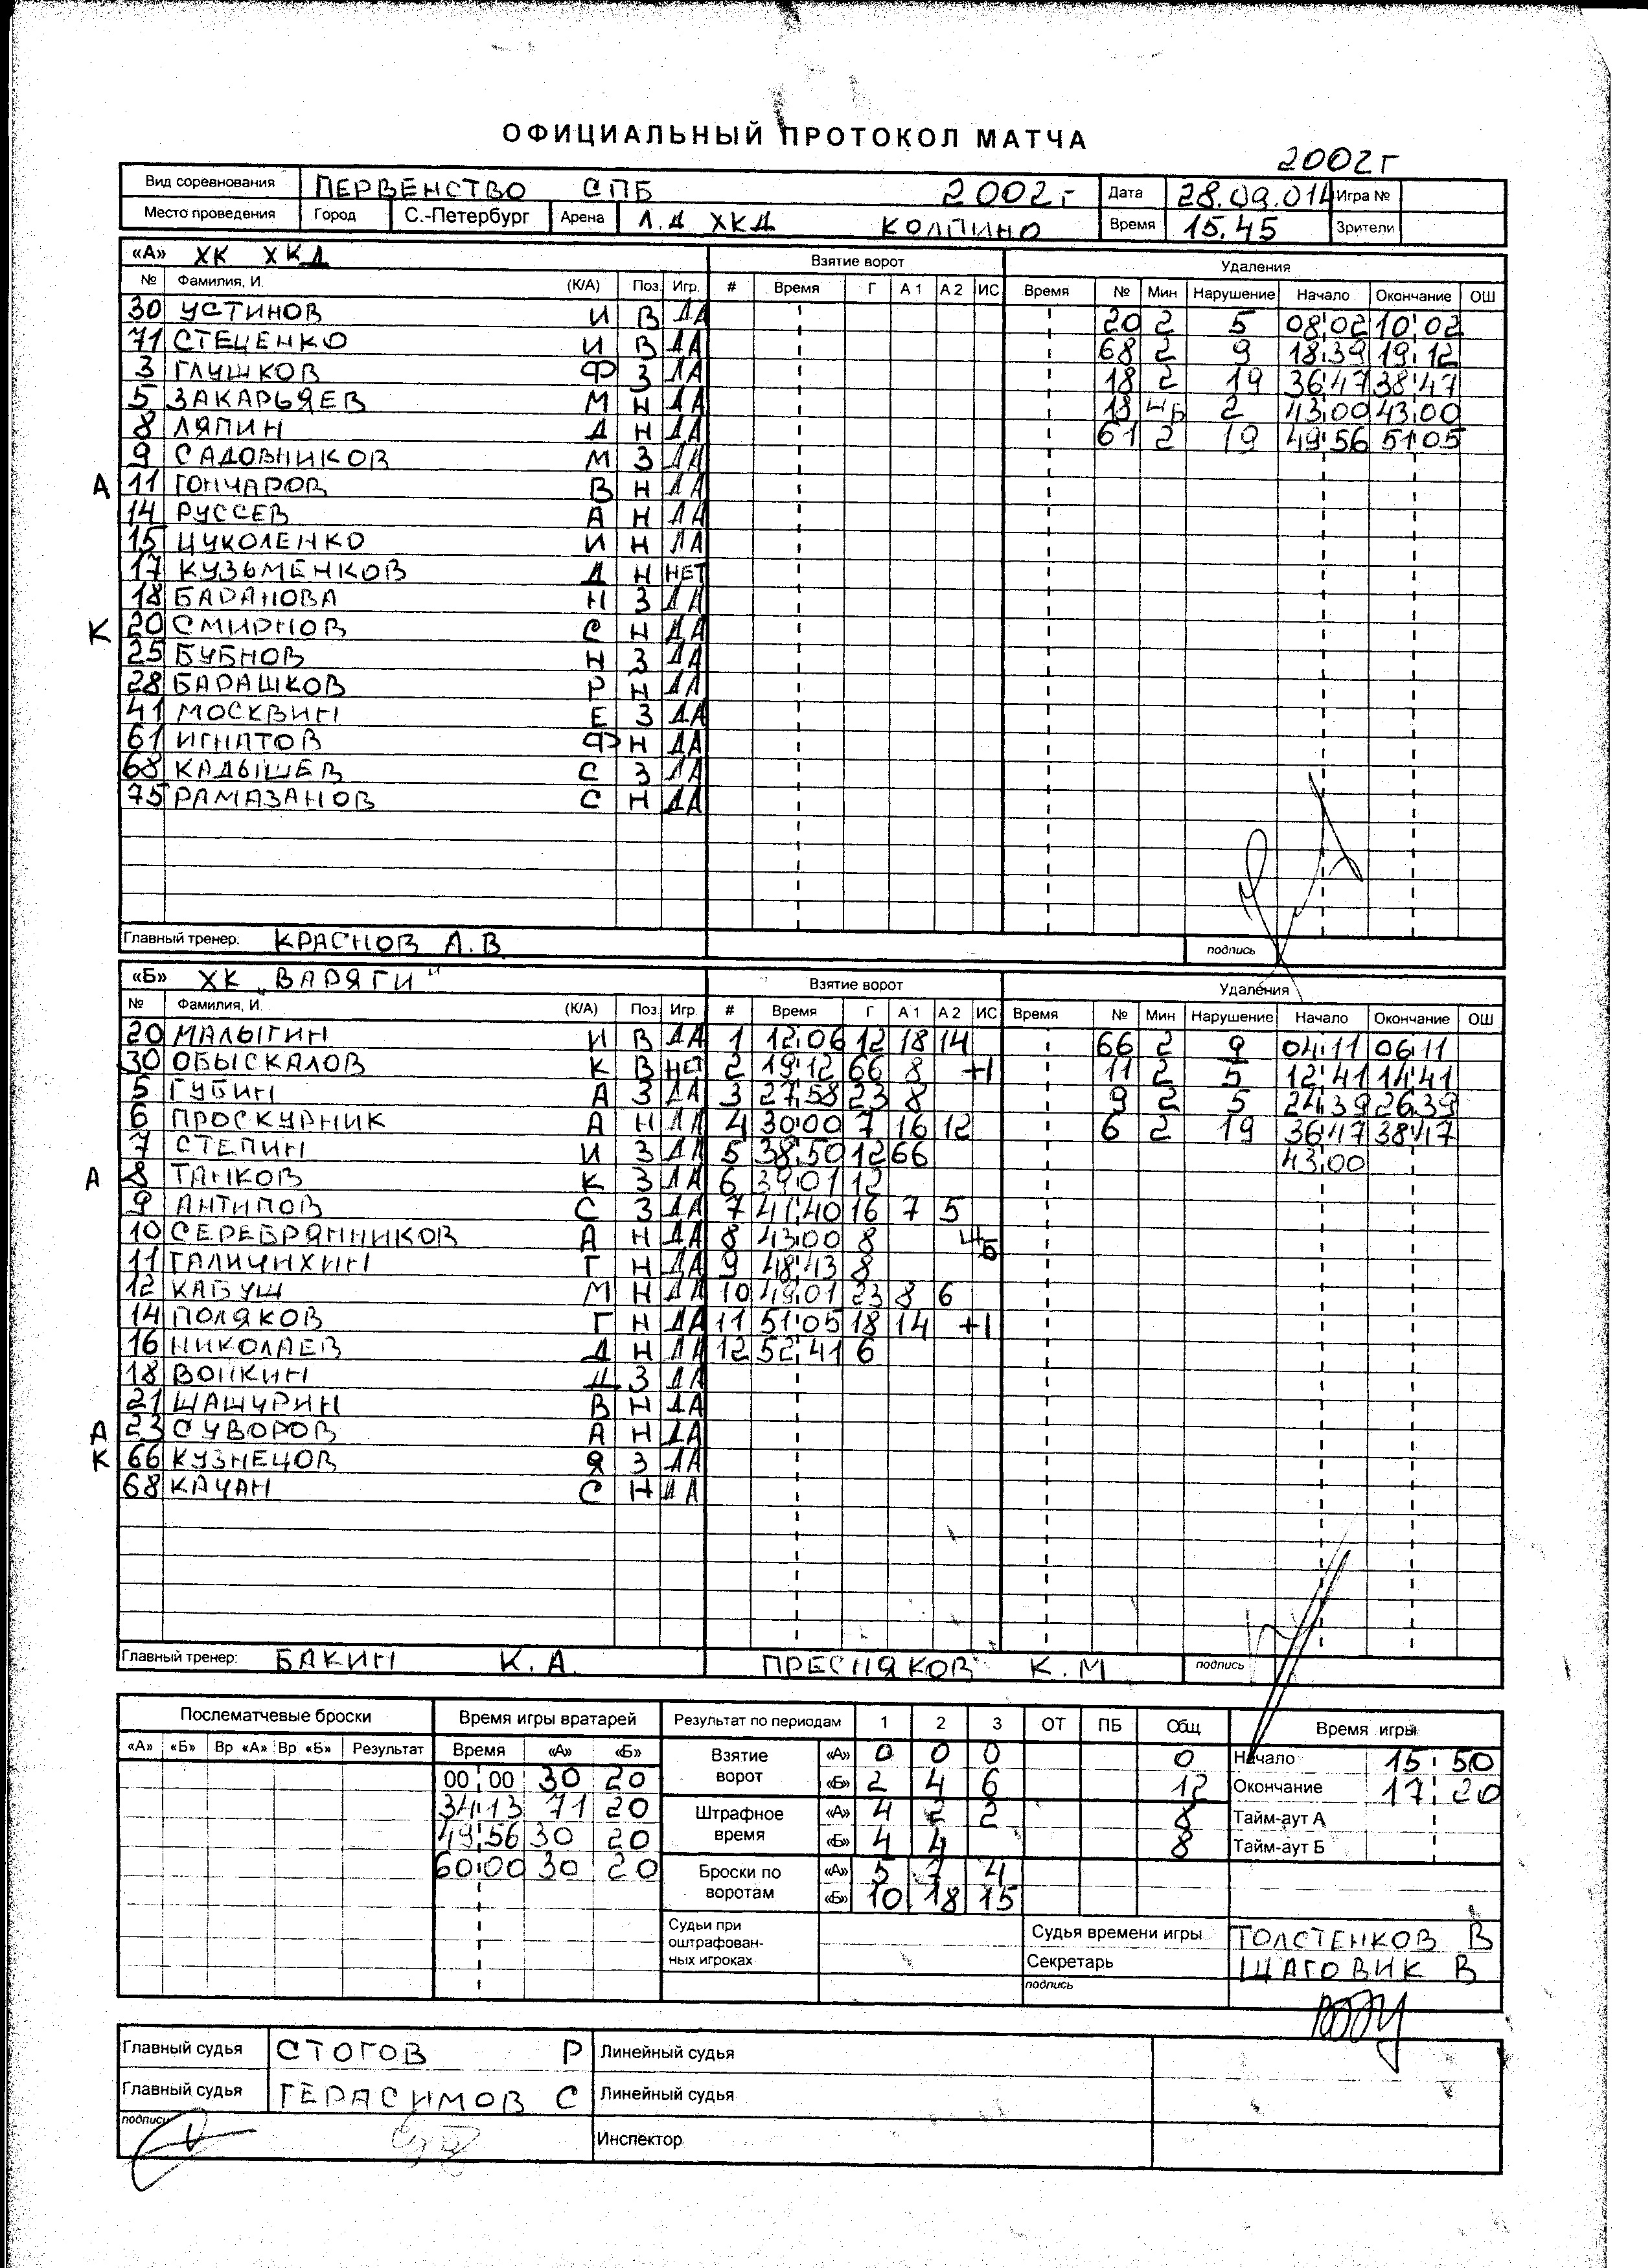 ОФИЦИАЛЬНЫЙ ПРОТОКОЛ МАТЧА
2002г
Вид соревнования ПЕРВЕНСТВО СПБ 2002г Дата 28.09.014 Игра №
Место проведения Город С.-Петербург Арена Л.Д ХКД КОЛПИНО Время 15.45 Зрители
«А» ХК ХКД Взятие ворот Удаления
№ Фамилия, И. (К/А) Поз. Игр. # Время Г А 1 А 2 ИС Время № Мин Нарушение Начало Окончание ОШ
30 УСТИНОВ И В ДА 20 2 5 08:02 10:02
71 СТЕЦЕНКО И В ДА 68 2 9 18:39 19:12
3 ГЛУШКОВ Ф З ДА 18 2 19 36:47 38:47
5 ЗАКАРЬЯЕВ М Н ДА 18 ШБ 2 43:00 43:00
8 ЛЯПИН Д Н ДА 61 2 19 49:56 51:05
9 САДОВНИКОВ М З ДА
А 11 ГОНЧАРОВ В Н ДА
14 РУССЕВ А Н ДА
15 ЦУКОЛЕНКО И Н ДА
17 КУЗЬМЕНКОВ Д Н НЕТ
18 БАРАНОВА Н З ДА
К 20 СМИРНОВ С Н ДА
25 БУБНОВ Н З ДА
28 БАРАШКОВ Р Н ДА
41 МОСКВИН Е З ДА
61 ИГНАТОВ Ф Н ДА
68 КАДЫШЕВ С З ДА
75 РАМАЗАНОВ С Н ДА
Главный тренер: КРАСНОВ А.В подпись
«Б» ХК „ВАРЯГИ" Взятие ворот Удаления
№ Фамилия, И. (К/А) Поз. Игр. # Время Г А 1 А 2 ИС Время № Мин Нарушение Начало Окончание ОШ
20 МАЛЫГИН И В ДА 1 12:06 12 18 14 66 2 9 04:11 06:11
30 ОБЫСКАЛОВ К В НЕТ 2 19:12 66 8 +1 11 2 5 12:41 14:41
5 ГУБИН А З ДА 3 27:58 23 8 9 2 5 24:39 26:39
6 ПРОСКУРНИК А Н ДА 4 30:00 7 16 12 6 2 19 36:47 38:47
7 СТЕПИН И З ДА 5 38:50 12 66 43:00
А 8 ТАНКОВ К З ДА 6 39:01 12
9 АНТИПОВ С З ДА 7 41:40 16 7 5
10 СЕРЕБРЯННИКОВ А Н ДА 8 43:00 8 ШБ
11 ГАЛИЧИХИН Г Н ДА 9 48:43 8
12 КАБУШ М Н ДА 10 49:01 23 8 6
14 ПОЛЯКОВ Г Н ДА 11 51:05 18 14 +1
16 НИКОЛАЕВ Д Н ДА 12 52:41 6
18 ВОЙКИН Д З ДА
21 ШАШУРИН В Н ДА
А 23 СУВОРОВ А Н ДА
К 66 КУЗНЕЦОВ Я З ДА
68 КАЧАН С Н ДА
Главный тренер: БАКИН К.А. ПРЕСНЯКОВ К.М подпись
Послематчевые броски Время игры вратарей Результат по периодам 1 2 3 ОТ ПБ Общ Время игры
«А» «Б» Вр «А» Вр «Б» Результат Время «А» «Б» Взятие ворот «А» 0 0 0 0 Начало 15:50
00:00 30 20 «Б» 2 4 6 12 Окончание 17:20
34:13 71 20 Штрафное время «А» 4 2 2 8 Тайм-аут А
49:56 30 20 «Б» 4 4 8 Тайм-аут Б
60:00 30 20 Броски по воротам «А» 5 4
«Б» 10 18 15
Судьи при оштрафован-ных игроках Судья времени игры ТОЛСТЕНКОВ В
Секретарь ШАГОВИК В
подпись
Главный судья СТОГОВ Р Линейный судья
Главный судья ГЕРАСИМОВ С Линейный судья
подпись Инспектор